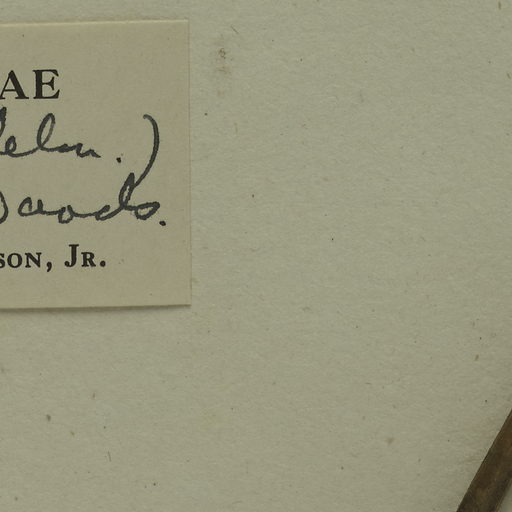 AE
elm.)
Woods.
SON, JR.